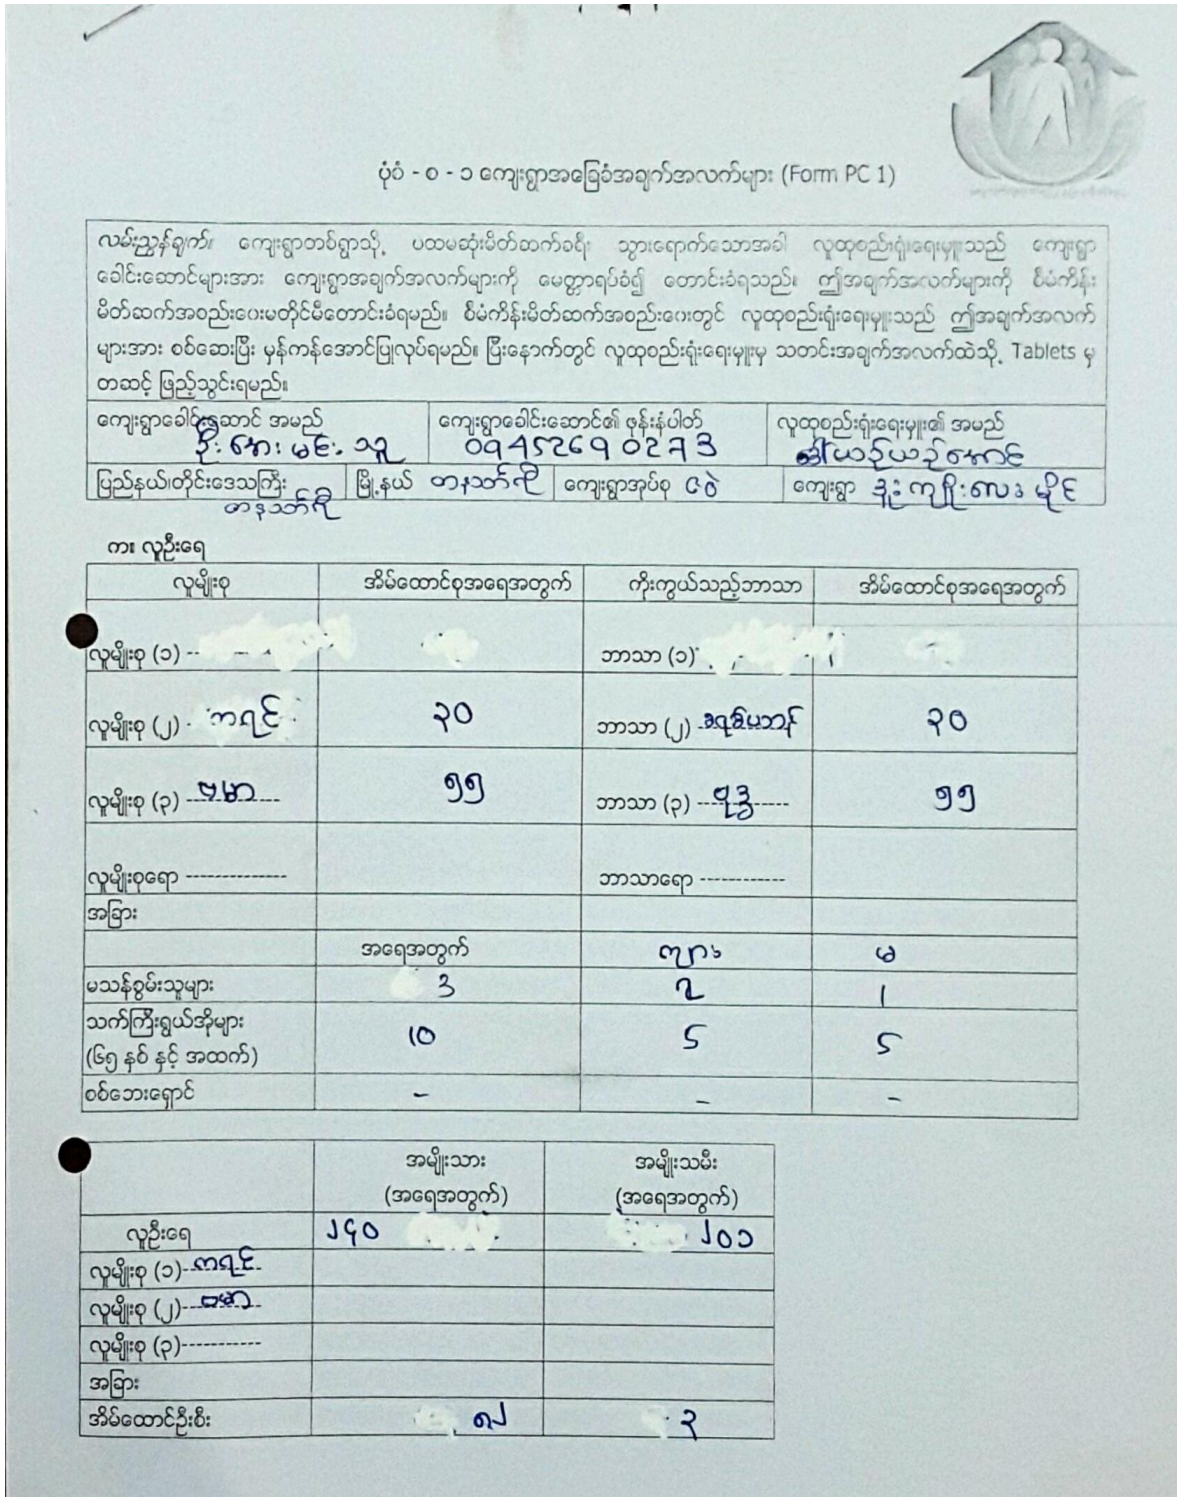 ပုံစံ - စ - ၁ ကျေးရွာအခြေခံအချက်အလက်များ (Form PC 1)
လမ်းညွှန်ချက်။ ကျေးရွာတစ်ရွာသို့ ပထမဆုံးမိတ်ဆက်ခရီး သွားရောက်သောအခါ လူထုစည်းရုံးရေးမှူးသည် ကျေးရွာ
ခေါင်းဆောင်များအား ကျေးရွာအချက်အလက်များကို မေတ္တာရပ်ခံ၍ တောင်းခံရသည်။ ဤအချက်အလက်များကို စီမံကိန်း
မိတ်ဆက်အစည်းဝေးမတိုင်မီတောင်းခံရမည်။ စီမံကိန်းမိတ်ဆက်အစည်းဝေးတွင် လူထုစည်းရုံးရေးမှူးသည် ဤအချက်အလက်
များအား စစ်ဆေးပြီး မှန်ကန်အောင်ပြုလုပ်ရမည်။ ပြီးနောက်တွင် လူထုစည်းရုံးရေးမှူးမှ သတင်းအချက်အလက်ထဲသို့ Tablets မှ
တဆင့် ဖြည့်သွင်းရမည်။
ကျေးရွာခေါင်းဆောင် အမည် ကျေးရွာခေါင်းဆောင်၏ ဖုန်းနံပါတ် လူထုစည်းရုံးရေးမှူး၏ အမည်
ဦးအေးမင်းသူ 09452690273 ဒေါ်ယဉ်ယဉ်အောင်
ပြည်နယ်/တိုင်းဒေသကြီး မြို့နယ် တနင်္သာရီ ကျေးရွာအုပ်စု ကျေးရွာ
တနင်္သာရီ
က။ လူဦးရေ
လူမျိုးစု အိမ်ထောင်စုအရေအတွက် ကိုးကွယ်သည့်ဘာသာ အိမ်ထောင်စုအရေအတွက်
လူမျိုးစု (၁) -- ဘာသာ (၁)
လူမျိုးစု (၂) - ကရင် ၃၀ ဘာသာ (၂) - ခရစ်ယာန် ၃၀
လူမျိုးစု (၃) ---ဗမာ--- ၅၅ ဘာသာ (၃) ---ဗုဒ္ဓ--- ၅၅
လူမျိုးစုရော -------------- ဘာသာရော ------------
အခြား
အရေအတွက် ကျား မ
မသန်စွမ်းသူများ 3 2 1
သက်ကြီးရွယ်အိုများ 10 5 5
(၆၅ နှစ် နှင့် အထက်)
စစ်ဘေးရှောင် - - -
အမျိုးသား အမျိုးသမီး
(အရေအတွက်) (အရေအတွက်)
လူဦးရေ ၂၄၀ ၂၀၁
လူမျိုးစု (၁)--ကရင်--
လူမျိုးစု (၂)---ဗမာ---
လူမျိုးစု (၃)-----------
အခြား
အိမ်ထောင်ဦးစီး ၈၂ ၃